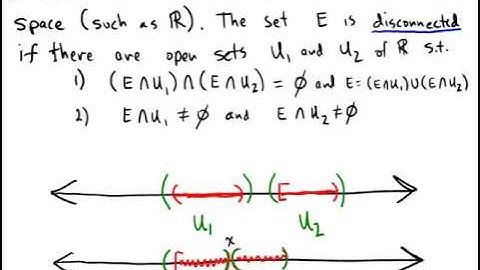 space (such as ℝ). The set E is disconnected
if there are open sets U₁ and U₂ of ℝ s.t.
1) (E∩U₁)∩(E∩U₂) = ∅ and E=(E∩U₁)∪(E∩U₂)
2) E∩U₁ ≠ ∅ and E∩U₂≠∅
U₁ U₂
x